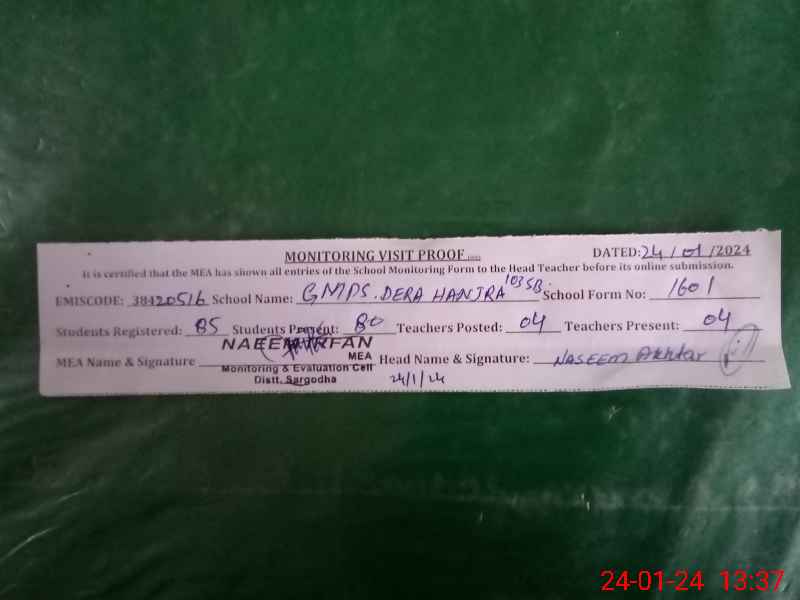 MONITORING VISIT PROOF DATED: 24/01/2024
It is certified that the MEA has shown all entries of the School Monitoring Form to the Head Teacher before its online submission.
EMISCODE: 38420516 School Name: GMPS. DERA HANJRA 103SB. School Form No: 1601
Students Registered: 85 Students Present: 80 Teachers Posted: 04 Teachers Present: 04
NAEEM IRFAN
MEA
MEA Name & Signature Head Name & Signature: NASEEM Akhtar
Monitoring & Evaluation Cell
Distt. Sargodha 24/1/24
24-01-24 13:37